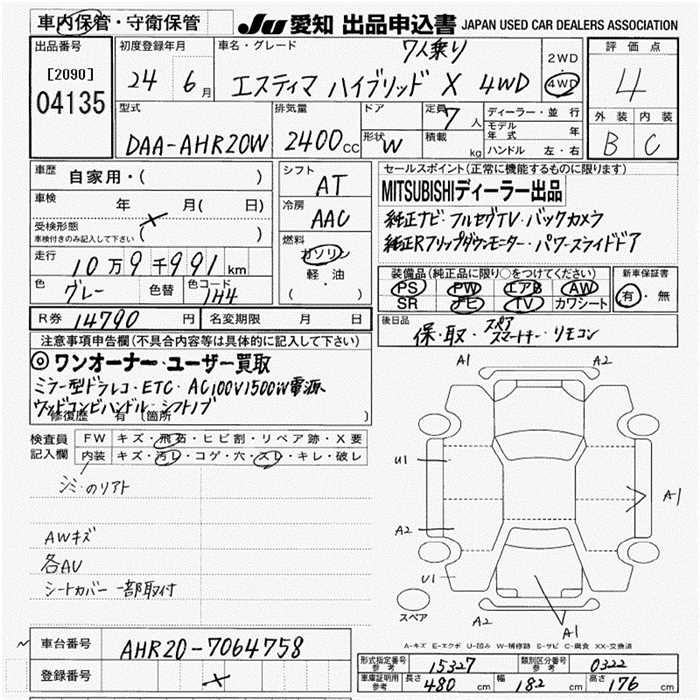 車内保管・守衛保管
JU 愛知 出品申込書 JAPAN USED CAR DEALERS ASSOCIATION
出品番号
[2090]
04135
初度登録年月
24 6月
車名・グレード
7人乗り
エスティマ ハイブリッド X 4WD
2WD
4WD
評価点
4
外装 内装
B C
型式
DAA-AHR20W
排気量
2400cc
ドア
形状 W
定員 7人
積載 kg
ディーラー・並行
モデル年式 年
ハンドル 左・右
車歴
自家用・( )
車検 年 月( 日)
受検形態
車検付きのみ記入して下さい ( )
走行
10万9千991km
色 グレー 色替 色コード 1H4
シフト
AT
冷房
AAC
燃料
ガソリン
軽・油
( )
セールスポイント(正常に機能するものに限ります)
MITSUBISHIディーラー出品
純正ナビ・フルセグTV・バックカメラ
純正Rフリップダウンモニター・パワースライドドア
装備品(純正品に限り○をつけてください)
PS PW エアB AW
SR ナビ TV カワシート
新車保証書
有・無
R券 14790円 名変期限 月 日
後日品
保・取・スペア
スマートキー・リモコン
注意事項申告欄(不具合内容等は具体的に記入して下さい)
◎ワンオーナー・ユーザー買取
ミラー型ドラレコ・ETC・AC100V1500W電源
ウッドコンビハンドル・シフトノブ
修復歴 有 (箇所 )
検査員
記入欄
FW キズ・飛石・ヒビ割・リペア跡・X要
内装 キズ・汚レ・コゲ・穴・スレ・キレ・破レ
シミのリアト
AWキズ
各AU
シートカバー 一部取付
A1 A2
U1
A1
A2
U1
スペア
A2 A1
A-キズ E-エクボ U-凹み W-補修跡 S-サビ C-腐食 XX-交換済
車台番号 AHR20-7064758
登録番号
形式指定番号
参考 15327
類別区分番号
参考 0322
車庫証明用
参考 長さ 480cm 幅 182cm 高さ 176cm